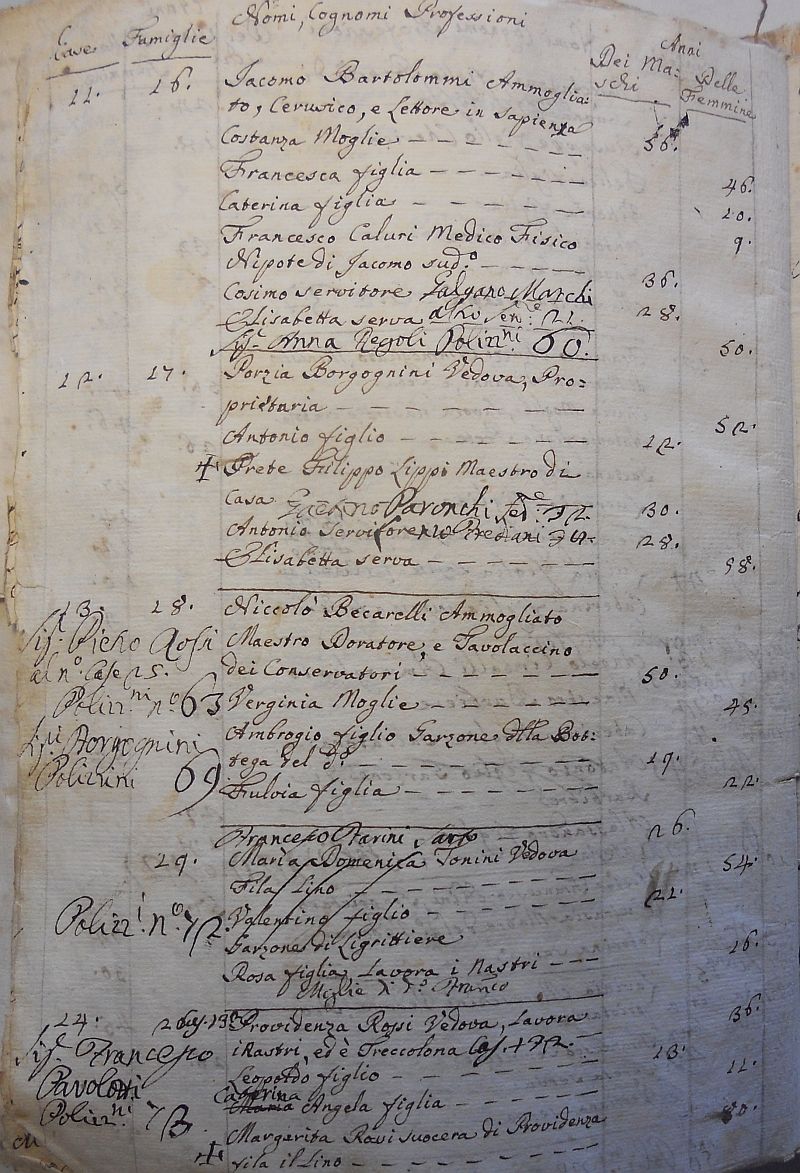 Nomi, Cognomi Professioni
Case Famiglie
Anni
Dei Ma= schi
Delle Femmine
11. 16. Jacomo Bartolommi Ammoglia=
to, Cerusico, e Lettore in Sapienza
56.
Costanza Moglie
46.
Francesca figlia
20.
Caterina figlia
9.
Francesco Caluri Medico Fisico
Nipote di Jacomo sud.o
36.
Cosimo servitore Galgano Marchi
28.
Elisabetta serva
50.
Anna Regoli Polizz.ni 60.
12. 17. Porzia Borgognini Vedova, Pro=
prietaria
52.
Antonio figlio 12.
Prete Filippo Lippi Maestro di
Casa Gaetano Paronchi 30.
Antonio Servitore 28.
Elisabetta serva 58.
13. 18. Niccolò Becarelli Ammogliato
Maestro Doratore, e Tavolaccino
dei Conservatori 50.
Piero Rosi
al n.o Case 15.
Polizz.ni n.o 63
Verginia Moglie 45.
Ambrogio figlio Garzone della Bot=
tega del d.o 19.
Borgognini
Polizzini 69
Fulvia figlia 22.
26.
19. Maria Domenica Tonini Vedova
54.
Fila Lino
Valentino figlio 21.
Polizz.i n.o 72.
Garzone di Ligrittiere
Rosa figlia, Lavora i Nastri 16.
Moglie di d.o Franco
14. Providenza Rossi Vedova, Lavora
36.
i Nastri, ed è Treccolona
Francesco
Leopoldo figlio 13.
Pavolotti
Caterina
Maria Angela figlia 11.
Polizz.ni 73
Margarita Rosi suocera di Providenza
80.
fila il Lino